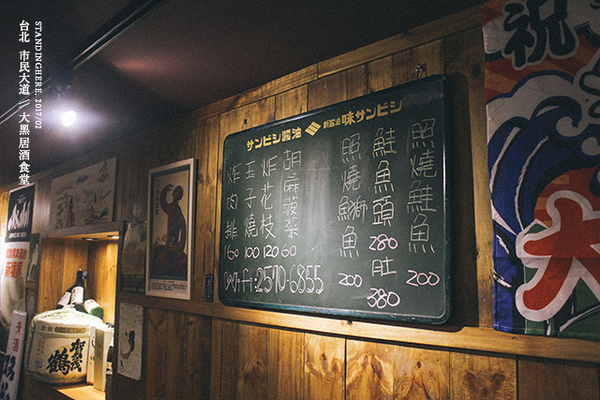 台北 市民大道 // 大黑居酒食堂
STANDINGHERE. 2017/02
サンビシ醤油 新醤油 味サンビシ
胡麻菠菜 60
炸花枝 120
玉子燒 100
炸肉排 160
照燒鮭魚 200
鮭魚頭 280
肚 380
照燒鰤魚 200
Wifi:2570-6855
祝
大
賀茂鶴